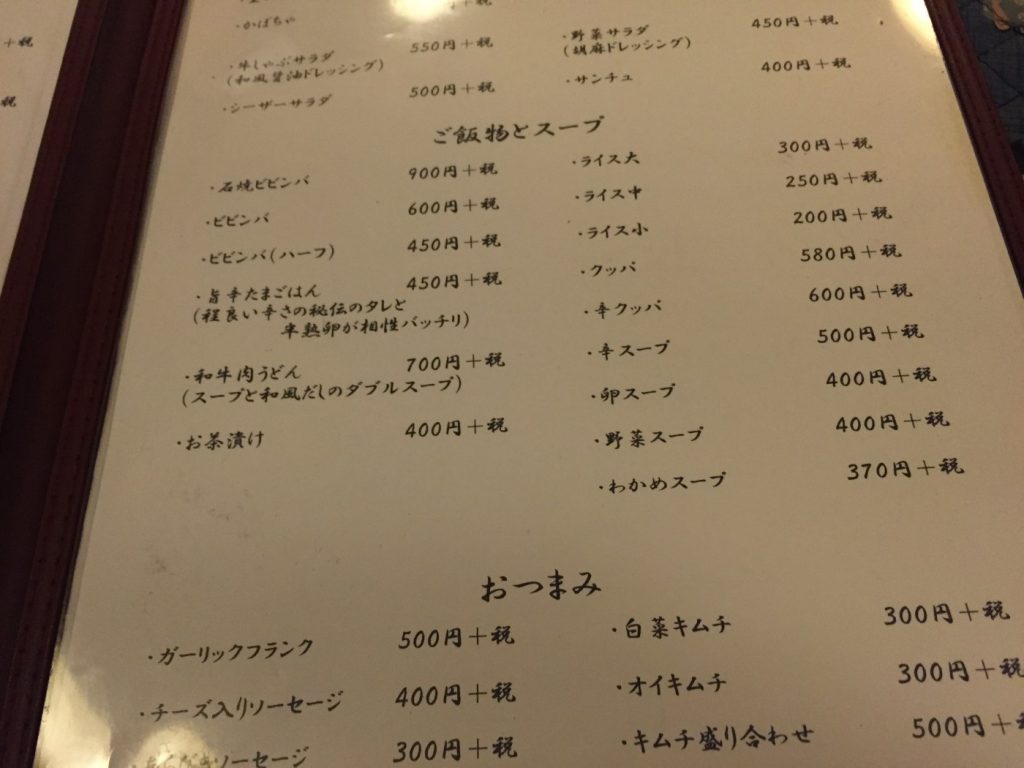 +税
税
・かぼちゃ
円+税
・牛しゃぶサラダ 550円+税
(和風醤油ドレッシング)
・シーザーサラダ 500円+税
・野菜サラダ 450円+税
(胡麻ドレッシング)
・サンチュ 400円+税
ご飯物とスープ
・石焼ビビンバ 900円+税
・ビビンバ 600円+税
・ビビンバ(ハーフ) 450円+税
・旨辛たまごはん 450円+税
(程良い辛さの秘伝のタレと
半熟卵が相性バッチリ)
・和牛肉うどん 700円+税
(スープと和風だしのダブルスープ)
・お茶漬け 400円+税
・ライス大 300円+税
・ライス中 250円+税
・ライス小 200円+税
・クッパ 580円+税
・辛クッパ 600円+税
・辛スープ 500円+税
・卵スープ 400円+税
・野菜スープ 400円+税
・わかめスープ 370円+税
おつまみ
・ガーリックフランク 500円+税
・チーズ入りソーセージ 400円+税
ソーセージ 300円+税
・白菜キムチ 300円+税
・オイキムチ 300円+税
・キムチ盛り合わせ 500円+